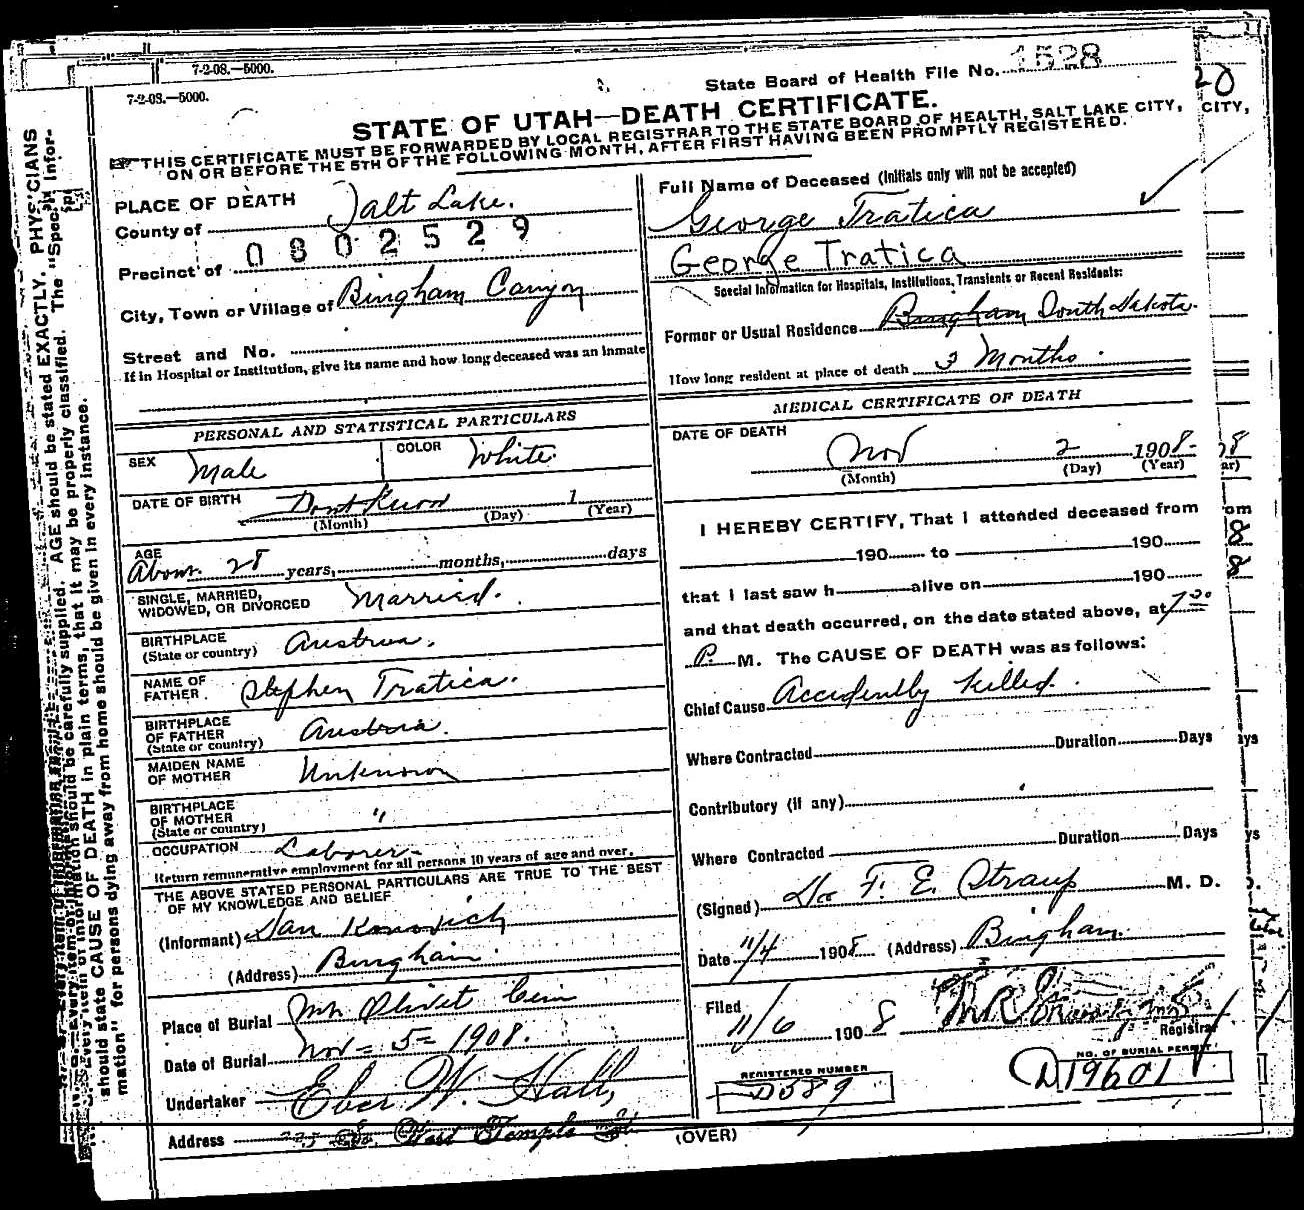 7-2-08.—5000.
7-2-08.—5000.
State Board of Health File No. 1528
STATE OF UTAH—DEATH CERTIFICATE.
THIS CERTIFICATE MUST BE FORWARDED BY LOCAL REGISTRAR TO THE STATE BOARD OF HEALTH, SALT LAKE CITY,
ON OR BEFORE THE 5TH OF THE FOLLOWING MONTH, AFTER FIRST HAVING BEEN PROMPTLY REGISTERED.
CITY,
PLACE OF DEATH
County of Salt Lake.
0802529
Precinct of
City, Town or Village of Bingham Canyon
Street and No.
If in Hospital or Institution, give its name and how long deceased was an inmate
PERSONAL AND STATISTICAL PARTICULARS
SEX Male
COLOR White
DATE OF BIRTH Dont Know 1
(Month) (Day) (Year)
AGE
About 28 years, months, days
SINGLE, MARRIED,
WIDOWED, OR DIVORCED Married.
BIRTHPLACE
(State or country) Austria.
NAME OF
FATHER. Stephen Tratica.
BIRTHPLACE
OF FATHER
(State or country) Austria.
MAIDEN NAME
OF MOTHER Unknown
BIRTHPLACE
OF MOTHER
(State or country) "
OCCUPATION Laborer
Return remunerative employment for all persons 10 years of age and over.
THE ABOVE STATED PERSONAL PARTICULARS ARE TRUE TO THE BEST
OF MY KNOWLEDGE AND BELIEF
(Informant) Dan
(Address) Bingham
Place of Burial Mt. Olivet Cem
Date of Burial Nov - 5 - 1908.
Undertaker Eber W. Hall,
Address So. West Temple St
(OVER)
Full Name of Deceased (Initials only will not be accepted)
George Tratica
George Tratica
Special Information for Hospitals, Institutions, Transients or Recent Residents:
Former or Usual Residence Bingham South Dakota.
How long resident at place of death 3 Months.
MEDICAL CERTIFICATE OF DEATH
DATE OF DEATH
Nov 2 1908.
(Month) (Day) (Year)
I HEREBY CERTIFY, That I attended deceased from
190 to 190
that I last saw h alive on 190
and that death occurred, on the date stated above, at 7 30
P. M. The CAUSE OF DEATH was as follows:
Chief Cause Accidently killed.
Where Contracted Duration Days
Contributory (if any)
Where Contracted Duration Days
(Signed) F. E. Straup M. D.
Date 11/4 1908 (Address) Bingham
Filed
11/6 1908
Registrar
REGISTERED NUMBER
D589
NO. OF BURIAL PERMIT
D19601
AGE should be stated EXACTLY. PHYSICIANS
should state CAUSE OF DEATH in plain terms, that it may be properly classified. The "Special Infor-
mation" for persons dying away from home should be given in every instance.